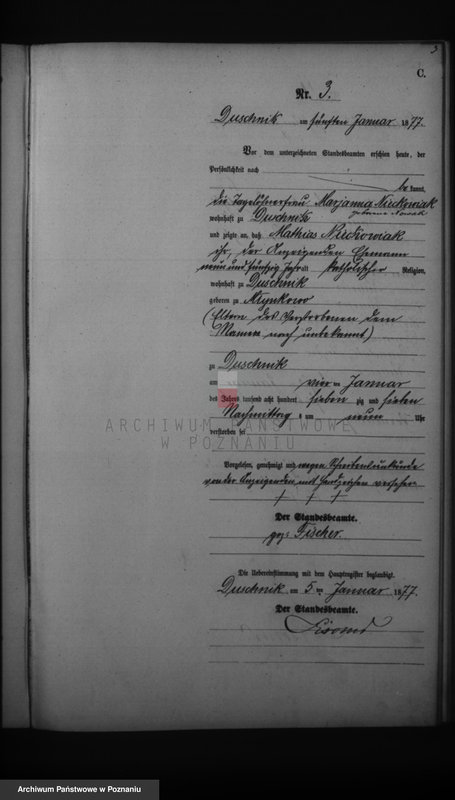 3
C.
Nr. 3.
Duschnik am fünften Januar 1877.
Vor dem unterzeichneten Standesbeamten erschien heute, der
Persönlichkeit nach
be kannt,
die Tagelöhnerfrau Marjanna Nieckowiak
geborene Nowak
wohnhaft zu Duschnik
und zeigte an, daß Mathias Nieckowiak
ihr, der Anzeigenden Ehemann
neun und fünfzig Jahr alt katholischer Religion,
wohnhaft zu Duschnik
geboren zu Mlynkowo
(Eltern des Verstorbenen dem
Namen nach unbekannt)
zu Duschnik
am vier ten Januar
des Jahres tausend acht hundert sieben zig und sieben
Nachmittag s um neun Uhr
verstorben sei
ARCHIWUM PAŃSTWOWE
W POZNANIU
Vorgelesen, genehmigt und wegen Schreibensunkunde
von der Anzeigenden mit Handzeichen versehen.
+ + +
Der Standesbeamte.
gez: Fischer.
Die Uebereinstimmung mit dem Hauptregister beglaubigt.
Duschnik am 5 ten Januar 1877.
Der Standesbeamte.
Archiwum Państwowe w Poznaniu